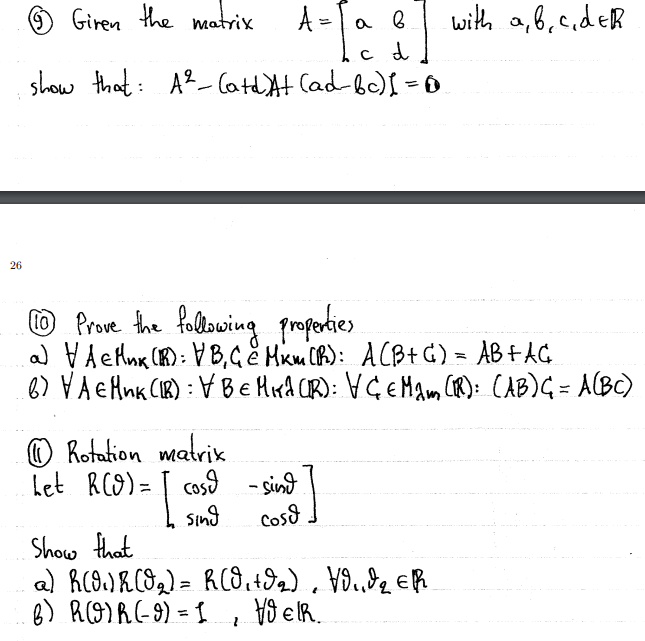 ⑨ Given the matrix A = [ a b ] with a,b,c,d∈ℝ
[ c d ]
show that: A² - (a+d)A + (ad-bc)I = 0
26
⑩ Prove the following properties
a) ∀A∈Mnk(ℝ): ∀B,C∈Mkm(ℝ): A(B+C) = AB+AC
b) ∀A∈Mnk(ℝ): ∀B∈Mkλ(ℝ): ∀C∈Mλm(ℝ): (AB)C = A(BC)
⑪ Rotation matrix
Let R(θ) = [ cosθ -sinθ ]
[ sinθ cosθ ]
Show that
a) R(θ₁)R(θ₂) = R(θ₁+θ₂) , ∀θ₁,θ₂∈ℝ
b) R(θ)R(-θ) = I , ∀θ∈ℝ.